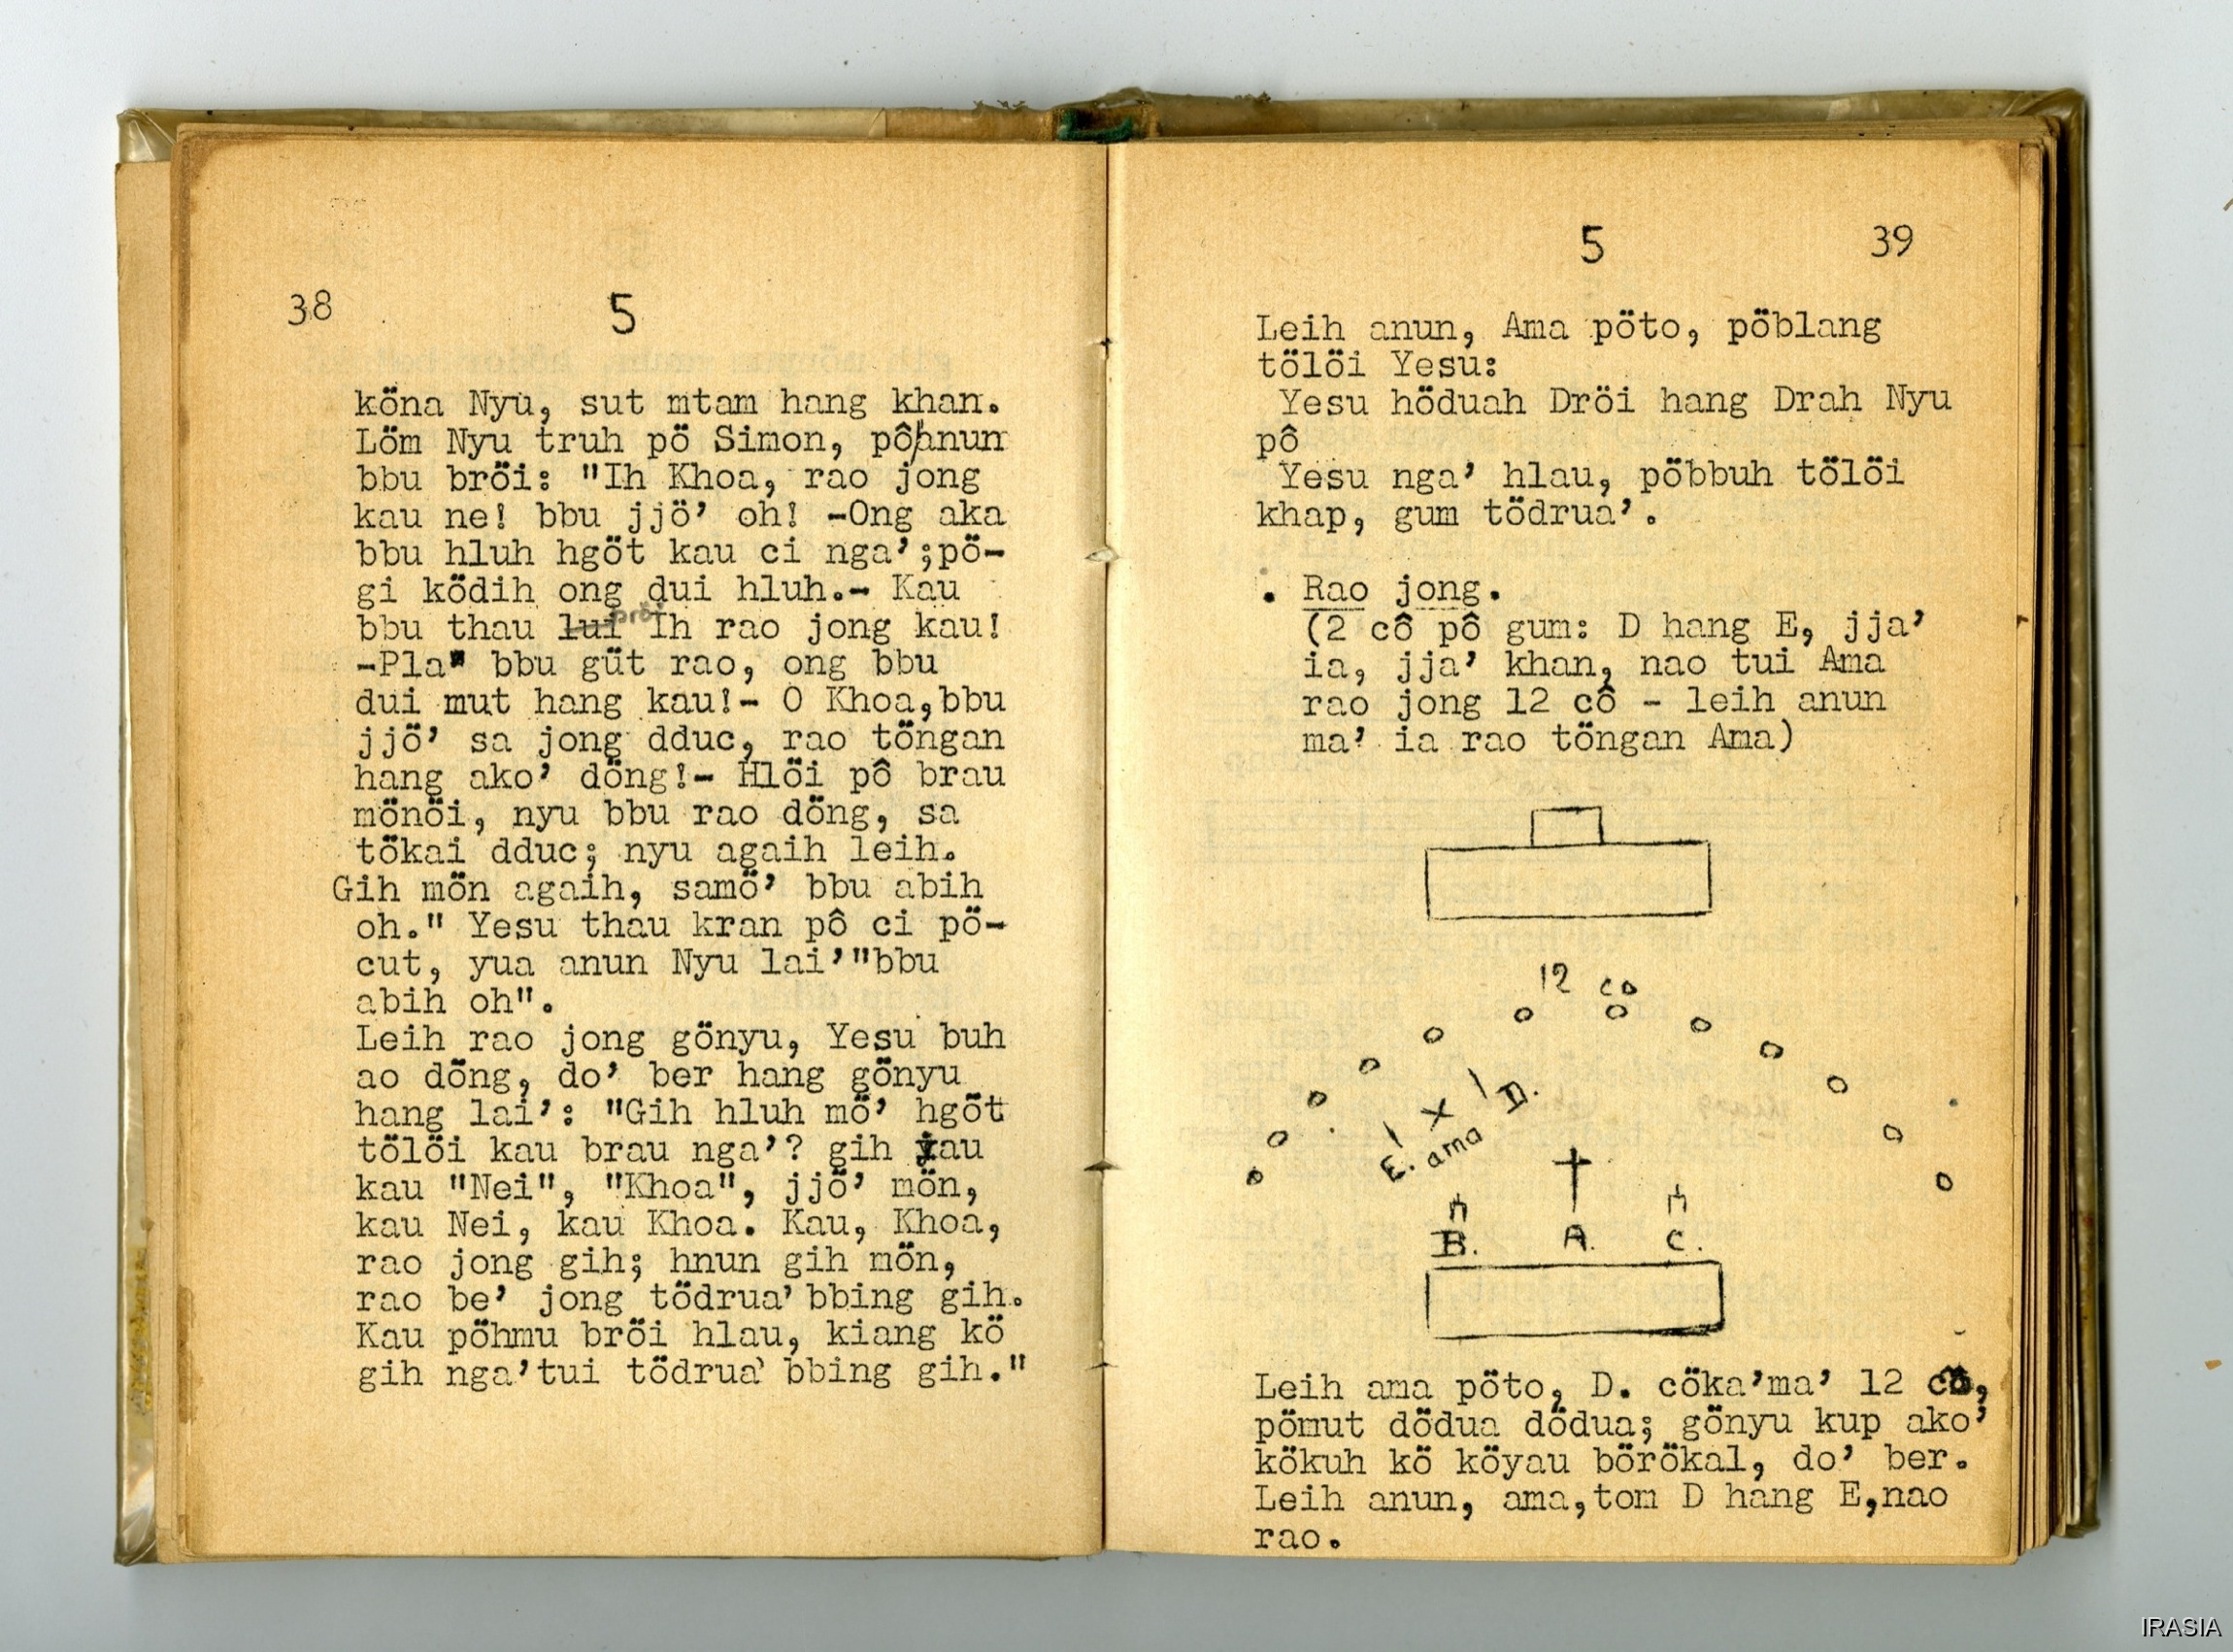 38 5
köna Nyu, sut mtam hang khan.
Löm Nyu truh pö Simon, pô hnun
bbu bröi: "Ih Khoa, rao jong
kau ne! bbu jjö’ oh! -Ong aka
bbu hluh hgöt kau ci nga’;pö-
gi ködih ong dui hluh.- Kau
pröi
bbu thau lui Ih rao jong kau!
-Pla" bbu güt rao, ong bbu
dui mut hang kau!- O Khoa,bbu
jjö’ sa jong dduc, rao töngan
hang ako’ döng!- Hlöi pô brau
mönöi, nyu bbu rao döng, sa
tökai dduc; nyu agaih leih.
Gih mön agaih, samö’ bbu abih
oh." Yesu thau kran pô ci pö-
cut, yua anun Nyu lai’"bbu
abih oh".
Leih rao jong gönyu, Yesu buh
ao döng, do’ ber hang gönyu
hang lai’: "Gih hluh mö’ hgöt
tölöi kau brau nga’? gih yau
kau "Nei", "Khoa", jjö’ mön,
kau Nei, kau Khoa. Kau, Khoa,
rao jong gih; hnun gih mön,
rao be’ jong tödrua’ bbing gih.
Kau pöhmu bröi hlau, kiang kö
gih nga’tui tödrua’ bbing gih."
5 39
Leih anun, Ama pöto, pöblang
tölöi Yesu:
Yesu höduah Dröi hang Drah Nyu
pô
Yesu nga’ hlau, pöbbuh tölöi
khap, gum tödrua’.
. Rao jong.
(2 cô pô gum: D hang E, jja’
ia, jja’ khan, nao tui Ama
rao jong 12 cô - leih anun
ma’ ia rao töngan Ama)
12 co
D.
E. ama
B. A. C.
Leih ama pöto, D. cöka’ma’ 12 cô,
pömut dödua dödua; gönyu kup ako’
kökuh kö köyau börökal, do’ ber.
Leih anun, ama,tom D hang E,nao
rao.
IRASIA